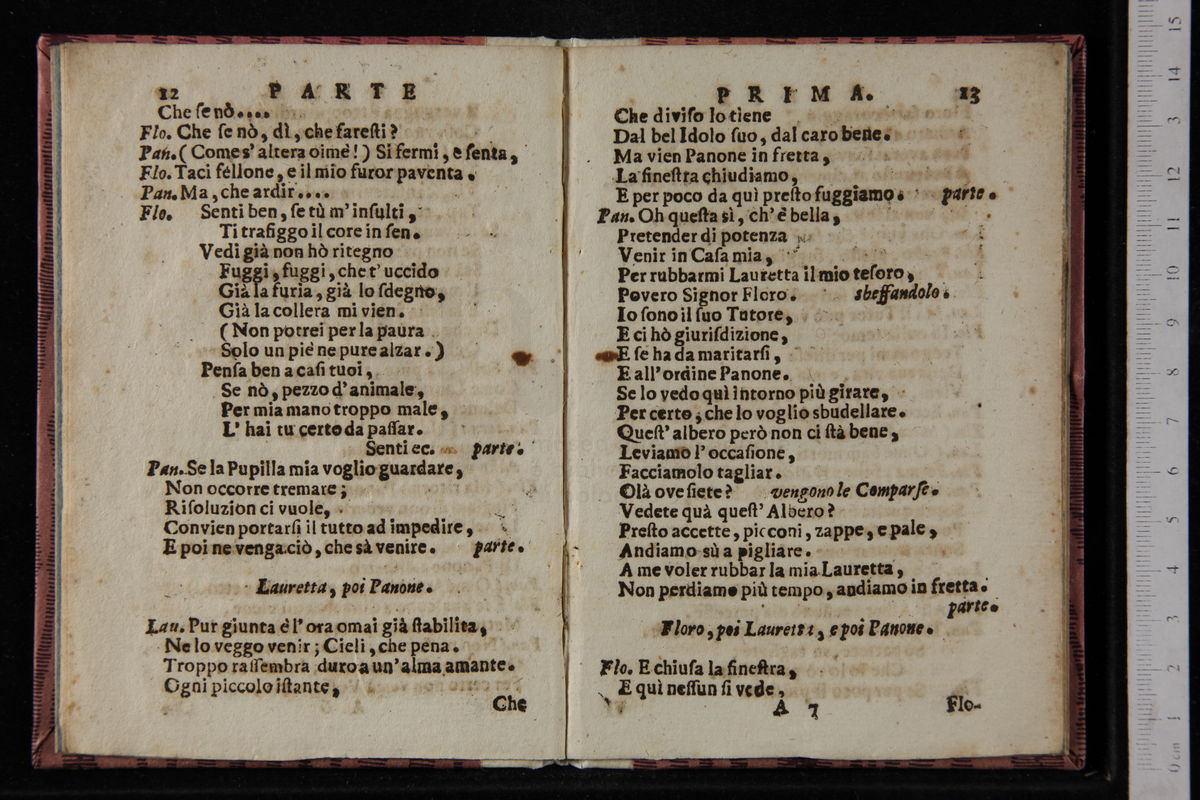 12 PARTE
Che ſe nò....
Flo. Che ſe nò, dì, che fareſti?
Pan. ( Come s' altera oimè! ) Si fermi, e ſenta,
Flo. Taci fellone, e il mio furor paventa.
Pan. Ma, che ardir....
Flo. Senti ben, ſe tù m' inſulti,
Ti trafiggo il core in ſen.
Vedi già non hò ritegno
Fuggi, fuggi, che t' uccido
Già la furia, già lo ſdegno,
Già la collera mi vien.
( Non potrei per la paura
Solo un piè ne pure alzar. )
Penſa ben a caſi tuoi,
Se nò, pezzo d' animale,
Per mia mano troppo male,
L' hai tu certo da paſſar.
Senti ec. parte.
Pan. Se la Pupilla mia voglio guardare,
Non occorre tremare;
Riſoluzion ci vuole,
Convien portarſi il tutto ad impedire,
E poi ne venga ciò, che sà venire. parte.
Lauretta, poi Panone.
Lau. Pur giunta è l' ora omai già ſtabilita,
Ne lo veggo venir; Cieli, che pena.
Troppo raſſembra duro a un' alma amante.
Ogni piccolo iſtante,
Che
PRIMA. 13
Che diviſo lo tiene
Dal bel Idolo ſuo, dal caro bene.
Ma vien Panone in fretta,
La fineſtra chiudiamo,
E per poco da quì preſto fuggiamo. parte.
Pan. Oh queſta sì, ch' è bella,
Pretender di potenza
Venir in Caſa mia,
Per rubbarmi Lauretta il mio teſoro,
Povero Signor Floro. sbeffandolo.
Io ſono il ſuo Tutore,
E ci hò giurifdizione,
E ſe ha da maritarſi,
E all' ordine Panone.
Se lo vedo quì intorno più girare,
Per certo, che lo voglio sbudellare.
Queſt' albero però non ci ſtà bene,
Leviamo l' occaſione,
Facciamolo tagliar.
Olà ove ſiete? vengono le Comparſe.
Vedete quà queſt' Albero?
Preſto accette, picconi, zappe, e pale,
Andiamo sù a pigliare.
A me voler rubbar la mia Lauretta,
Non perdiamo più tempo, andiamo in fretta.
parte.
Floro, poi Lauretta, e poi Panone.
Flo. E chiuſa la fineſtra,
E quì neſſun ſi vede,
A 7 Flo-
15
14
13
12
11
10
9
8
7
6
5
4
3
2
1
0 cm